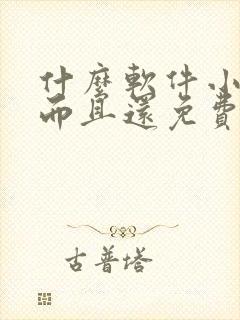 什麼軟件小
而且還免費
古普塔